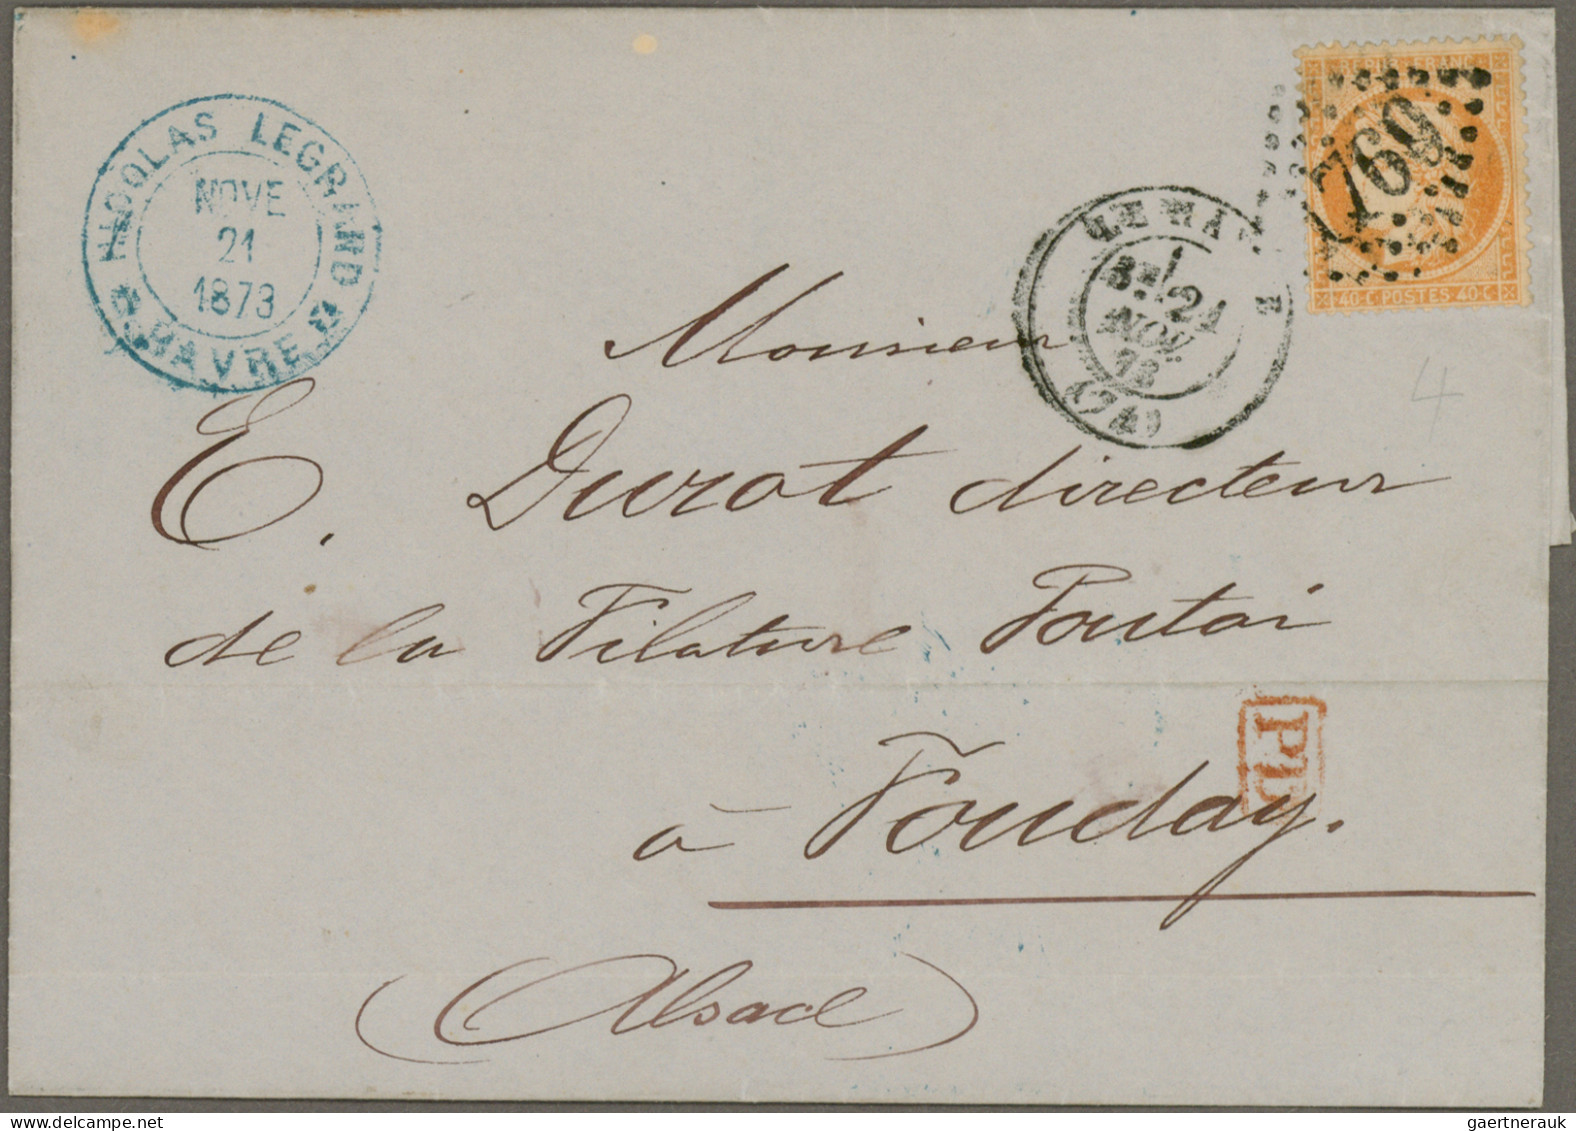 NICOLAS LEGRAND
NOVE
21
1873
HAVRE
REPUB FRANC
1769
40·C·POSTES 40·C
LE HAVRE
21
NOV
73
(74)
4
Monsieur
E. Durot directeur
de la Filature Poutai
à Fouday.
PD
(Alsace)
gaertnerauk